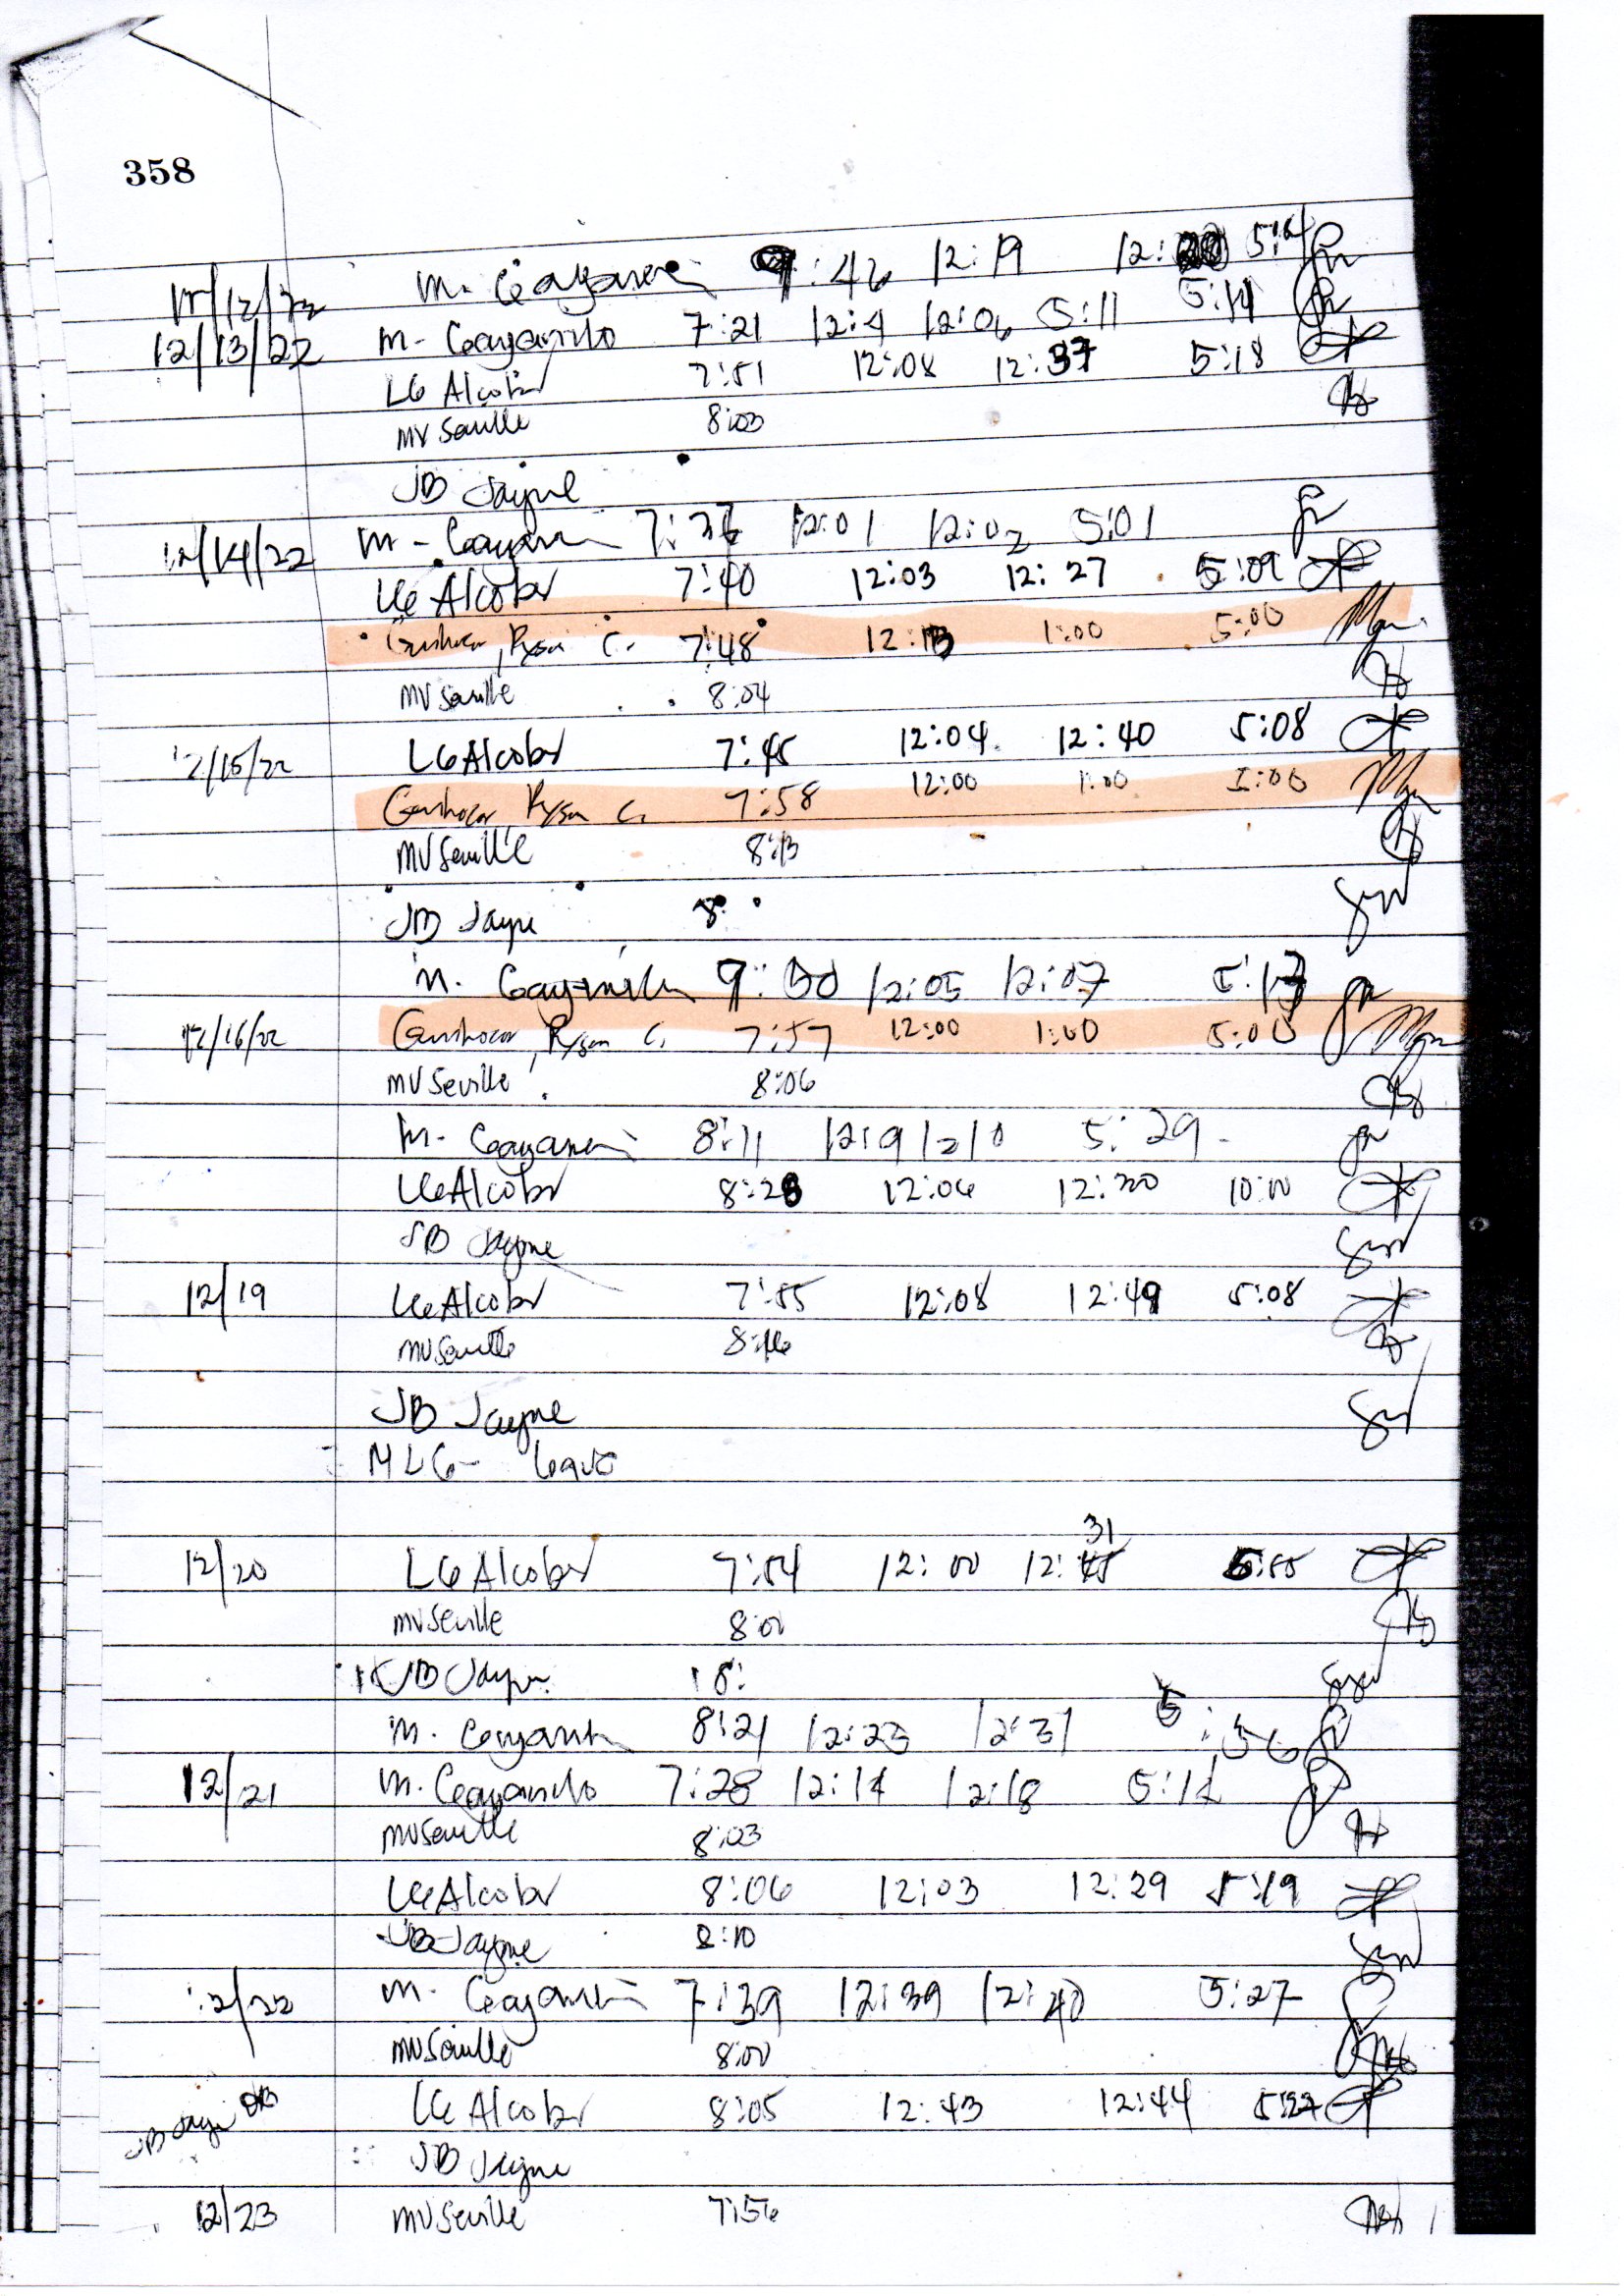 358
12/12/22 M. :46 12:19 12: 5:14
12/13/22 M. Gayanilo 7:21 12:4 12:06 5:11 5:14
LG Alcober 7:51 12:08 12:37 5:18
MV Seville 8:03
JB Jayme
12/14/22 M. 7:36 12:01 12:02 5:01
LG Alcober 7:40 12:03 12:27 5:09
C. 7:48 12:13 1:00 5:00
MV Seville 8:04
12/15/22 LG Alcober 7:45 12:04 12:40 5:08
C. 7:58 12:00 1:00 5:00
MV Seville 8:13
JB Jayme 8:
M. 12:05 12:07 5:13
12/16/22 C. 7:57 12:00 1:00 5:00
MV Seville 8:06
M. 8:11 12:9 12 10 5:29
LG Alcober 8:28 12:06 12:20 10:10
JB Jayme
12/19 LG Alcober 7:55 12:08 12:49 5:08
MV Seville 8:16
JB Jayme
MLG - Leave
31
12/20 LG Alcober 7:54 12:00 12:45 5:55
MV Seville 8:01
JB Jayme 8:
M. 8:21 12:23 12:31 5:56
12/21 M. Gayanilo 7:28 12:14 12:18 5:14
MV Seville 8:03
LG Alcober 8:06 12:03 12:29 5:19
JB Jayme 8:10
12/22 M. 7:39 12:39 12:40 5:27
MV Seville 8:00
JB Jayme OB
LG Alcober 8:05 12:43 12:44 5:27
JB Jayme
12/23 MV Seville 7:56